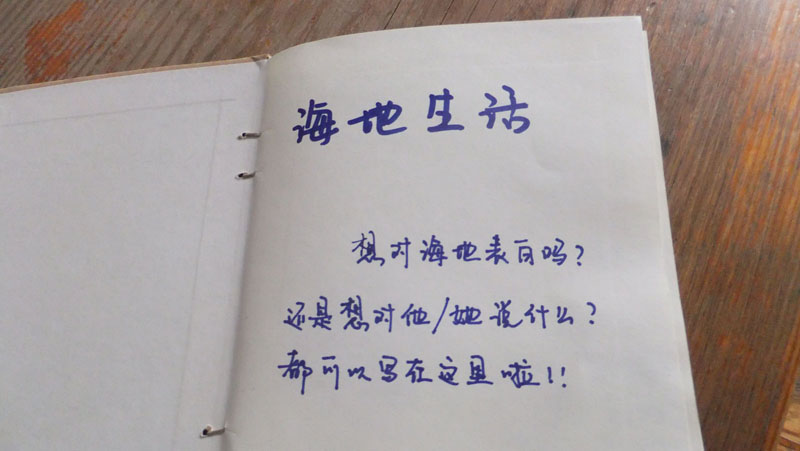 海地生活
想对海地表白吗?
还是想对他/她说什么?
都可以写在这里啦!!